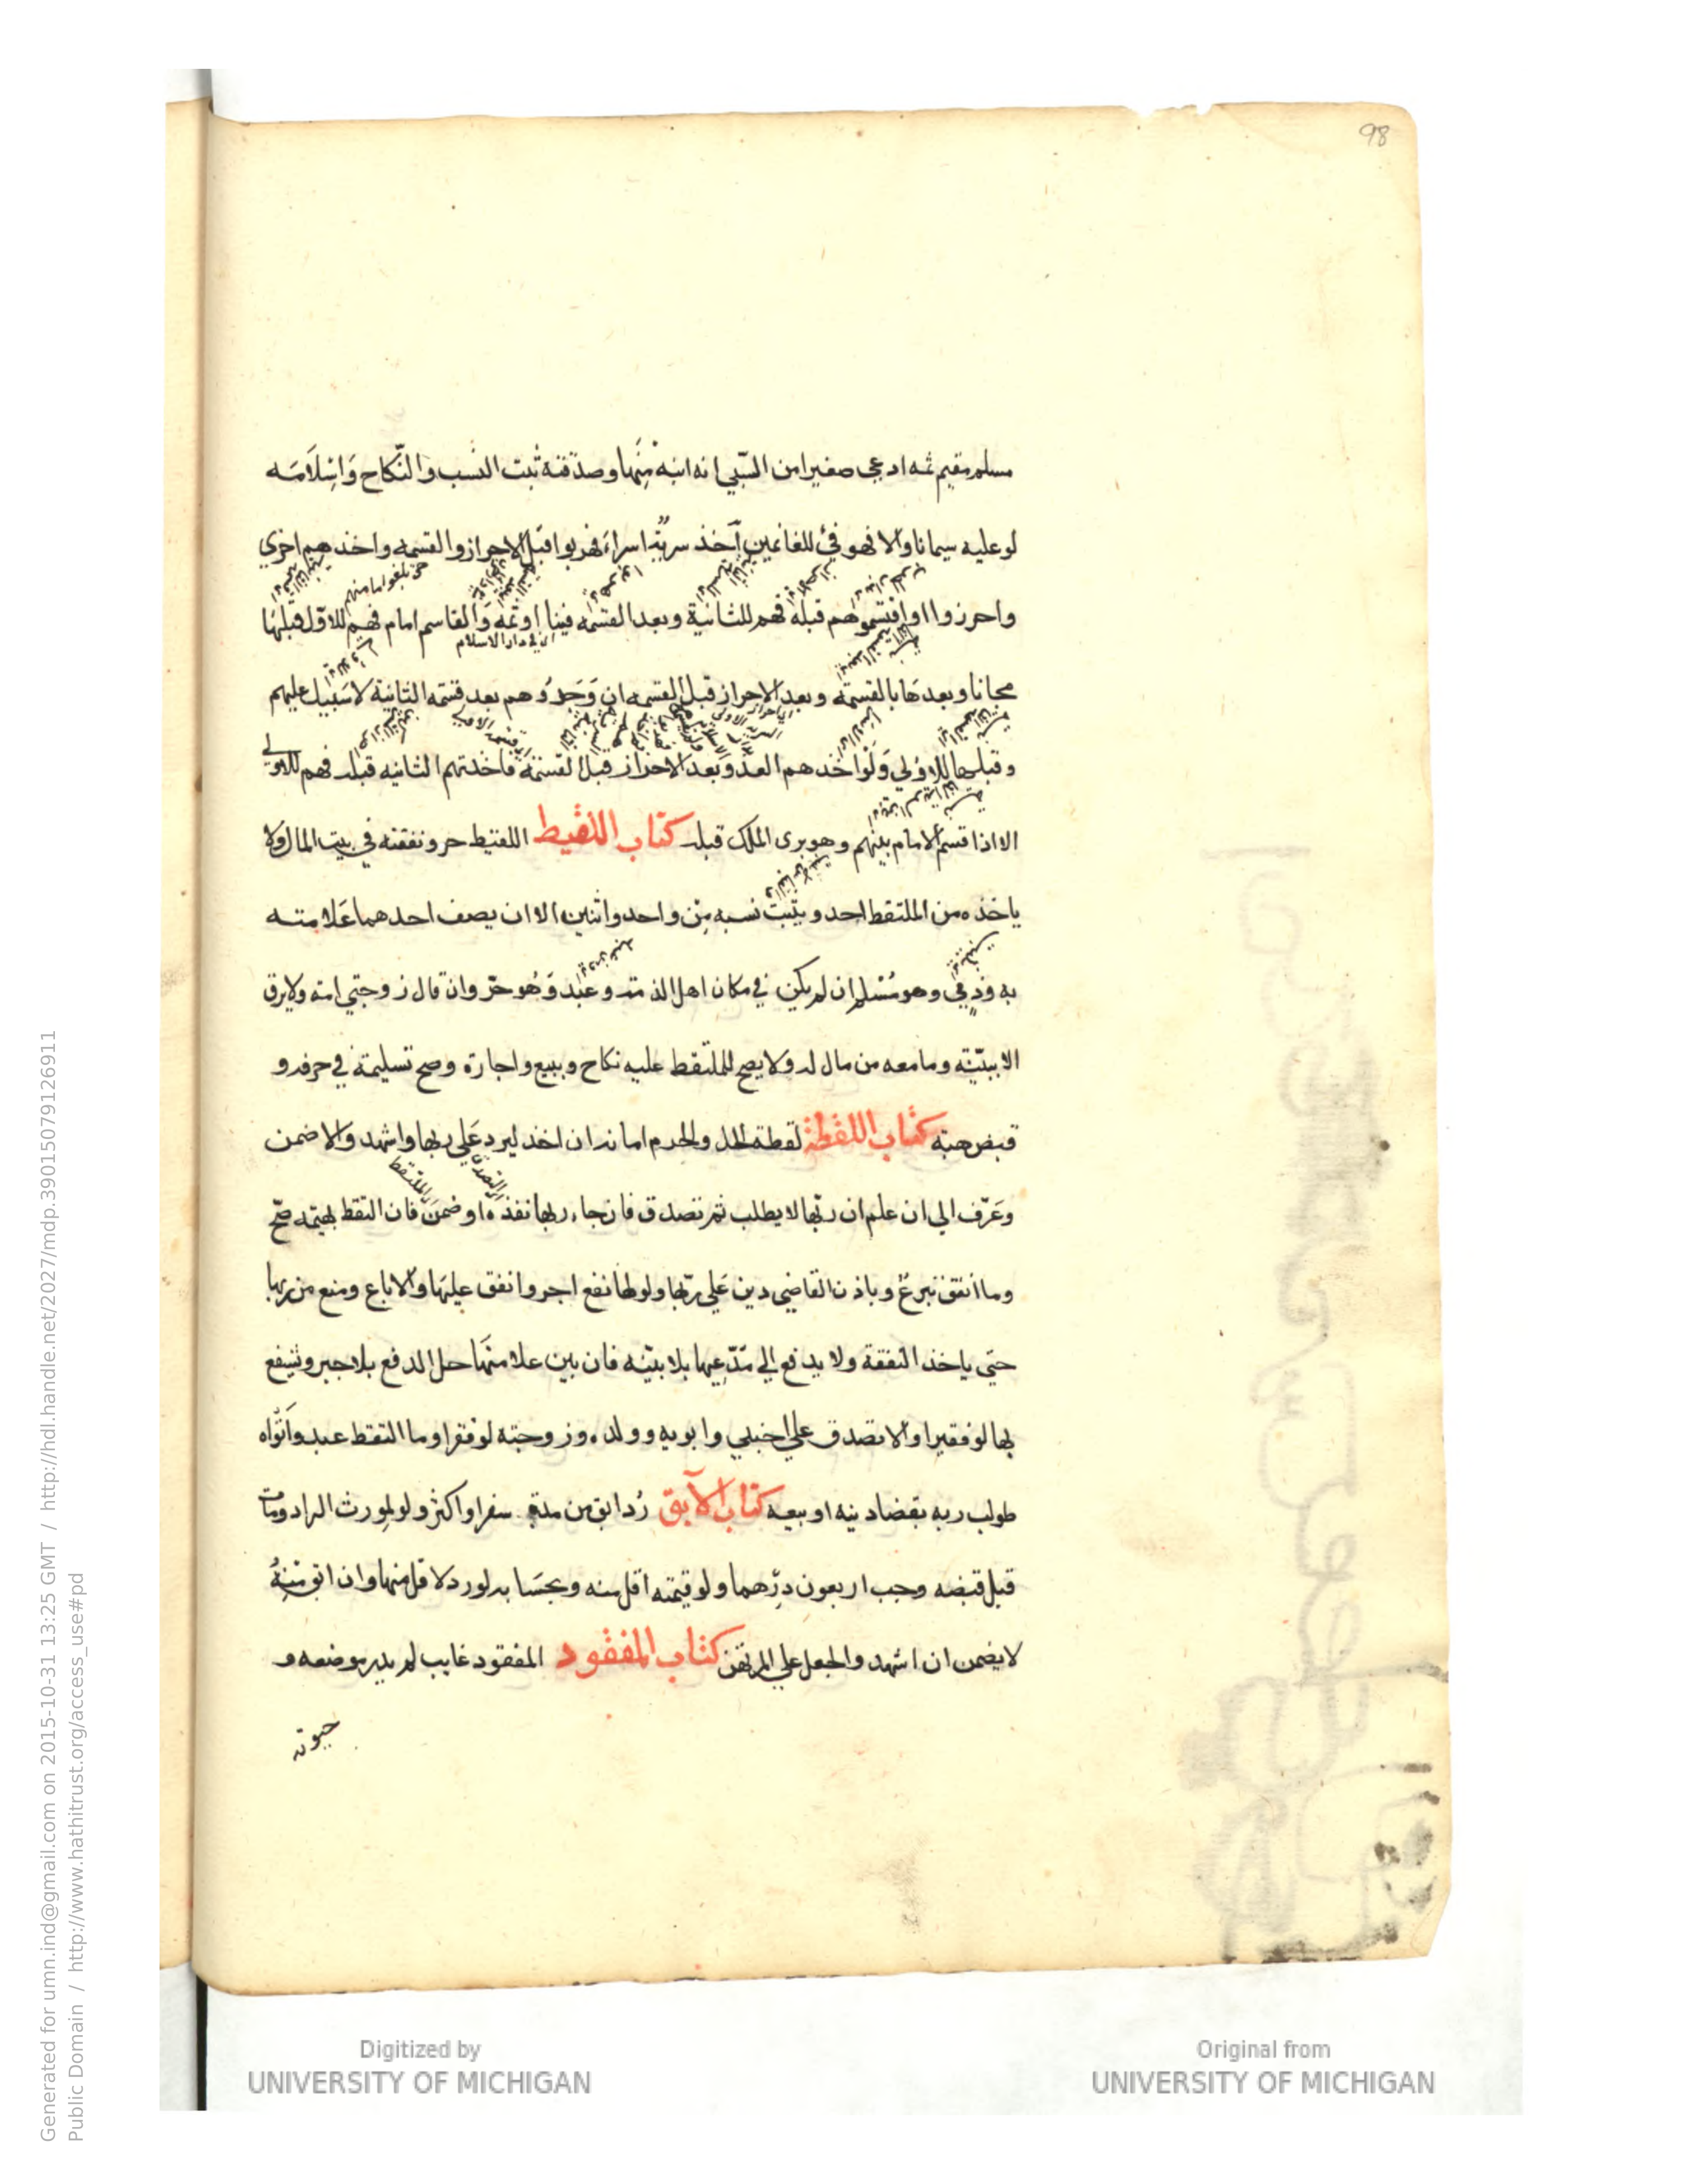 98
مسلم مقيم ثمه ادعى صغيرا من السّبي انه ابنه مِنَها وصدّقته ثبت النسب والنّكاح وَاسِلَامَه
لو عليه سيمانا والا فهو فيْ للغانمين آخذ سريّة اسراءَ فهربوا قبل الاحراز والقسمه واخذ هم اخرى
واحرزوا او اقتسموهم قبله فهم للثانية وبعد القسمه فينا او ثمه وَالقاسم امام فهم للاوّل قبلهَا
اى فى دار الاسلام
مجانا وبعدهَا بالقسمَة وبعد الاحراز قبل القسمه ان وَجَدُوهم بعد قسمه الثانية لا سَبيل عليهم
وقبلها للاوُلي وَلَوْ اخذهم العدوّ بعد الاحراز قبل القسمَة فاخذتهم الثانيه قبله فهم للاولى
الا اذا قسم الامام بينهم وهو يرى الملك قبله كتاب اللقيط اللقيط حر ونفقته في بيت المال ولا
ياخذه من الملتقط احد ويثبت نسبه مِن واحد واثنين الا ان يصف احدهما عَلامته
به وذِمّي وهو مُسْلم ان لم يكن في مكان اهل الذمة وعبد وَهُو حرّ وان قال زوجتي امته ولا يرق
الا ببيّنة وما معه من مال له ولا يصح للملتقط عليه نكاح وبيع واجارة وصح تسليمة في حرفه و
قبض هبته كتاب اللقطة لقطة الحل والحرم امانه ان اخذ ليرد عَلى ربها واشهد والا ضمن
وعَرّف الى ان علم ان ربّها لا يطلب ثم تصدق فان جاء ربها نفذه او ضمنَ فان التقط بهيمة صحّ
وما انفق تبرعٌ وباذن القاضي دين عَلى ربّها ولو لها نفع اجر وانفق عليهَا والا باع ومنع من ربها
حتي ياخذ النفقة ولا يدفع الي مدّعيها بلا بيّنه فان بين علامتهَا حل الدفع بلا جبر وينتفع
بها لو فقيرا والا تصدق علي اجنبي وابويه وولده وزوجته لو فقرا وما التقط عبد وَاتْواه
طولب ربه بقضا دينه او بيعه كتاب الآبق رُد ابق من مدة سفر او اكثر ولو لمورث الراد ومات
قبل قبضه وجب اربعون دِرْهما ولو قيمته اقل منه وبحسَابه لو رد لاقل منها وان ابق مِنهُ
لا يضمن ان اشهد والجعل علي المرتهن كتاب المفقود المفقود غايب لم يدر موضعه و
حيوته
Digitized by
UNIVERSITY OF MICHIGAN
Original from
UNIVERSITY OF MICHIGAN
Generated for umn.ind@gmail.com on 2015-10-31 13:25 GMT / http://hdl.handle.net/2027/mdp.39015079126911
Public Domain / http://www.hathitrust.org/access_use#pd